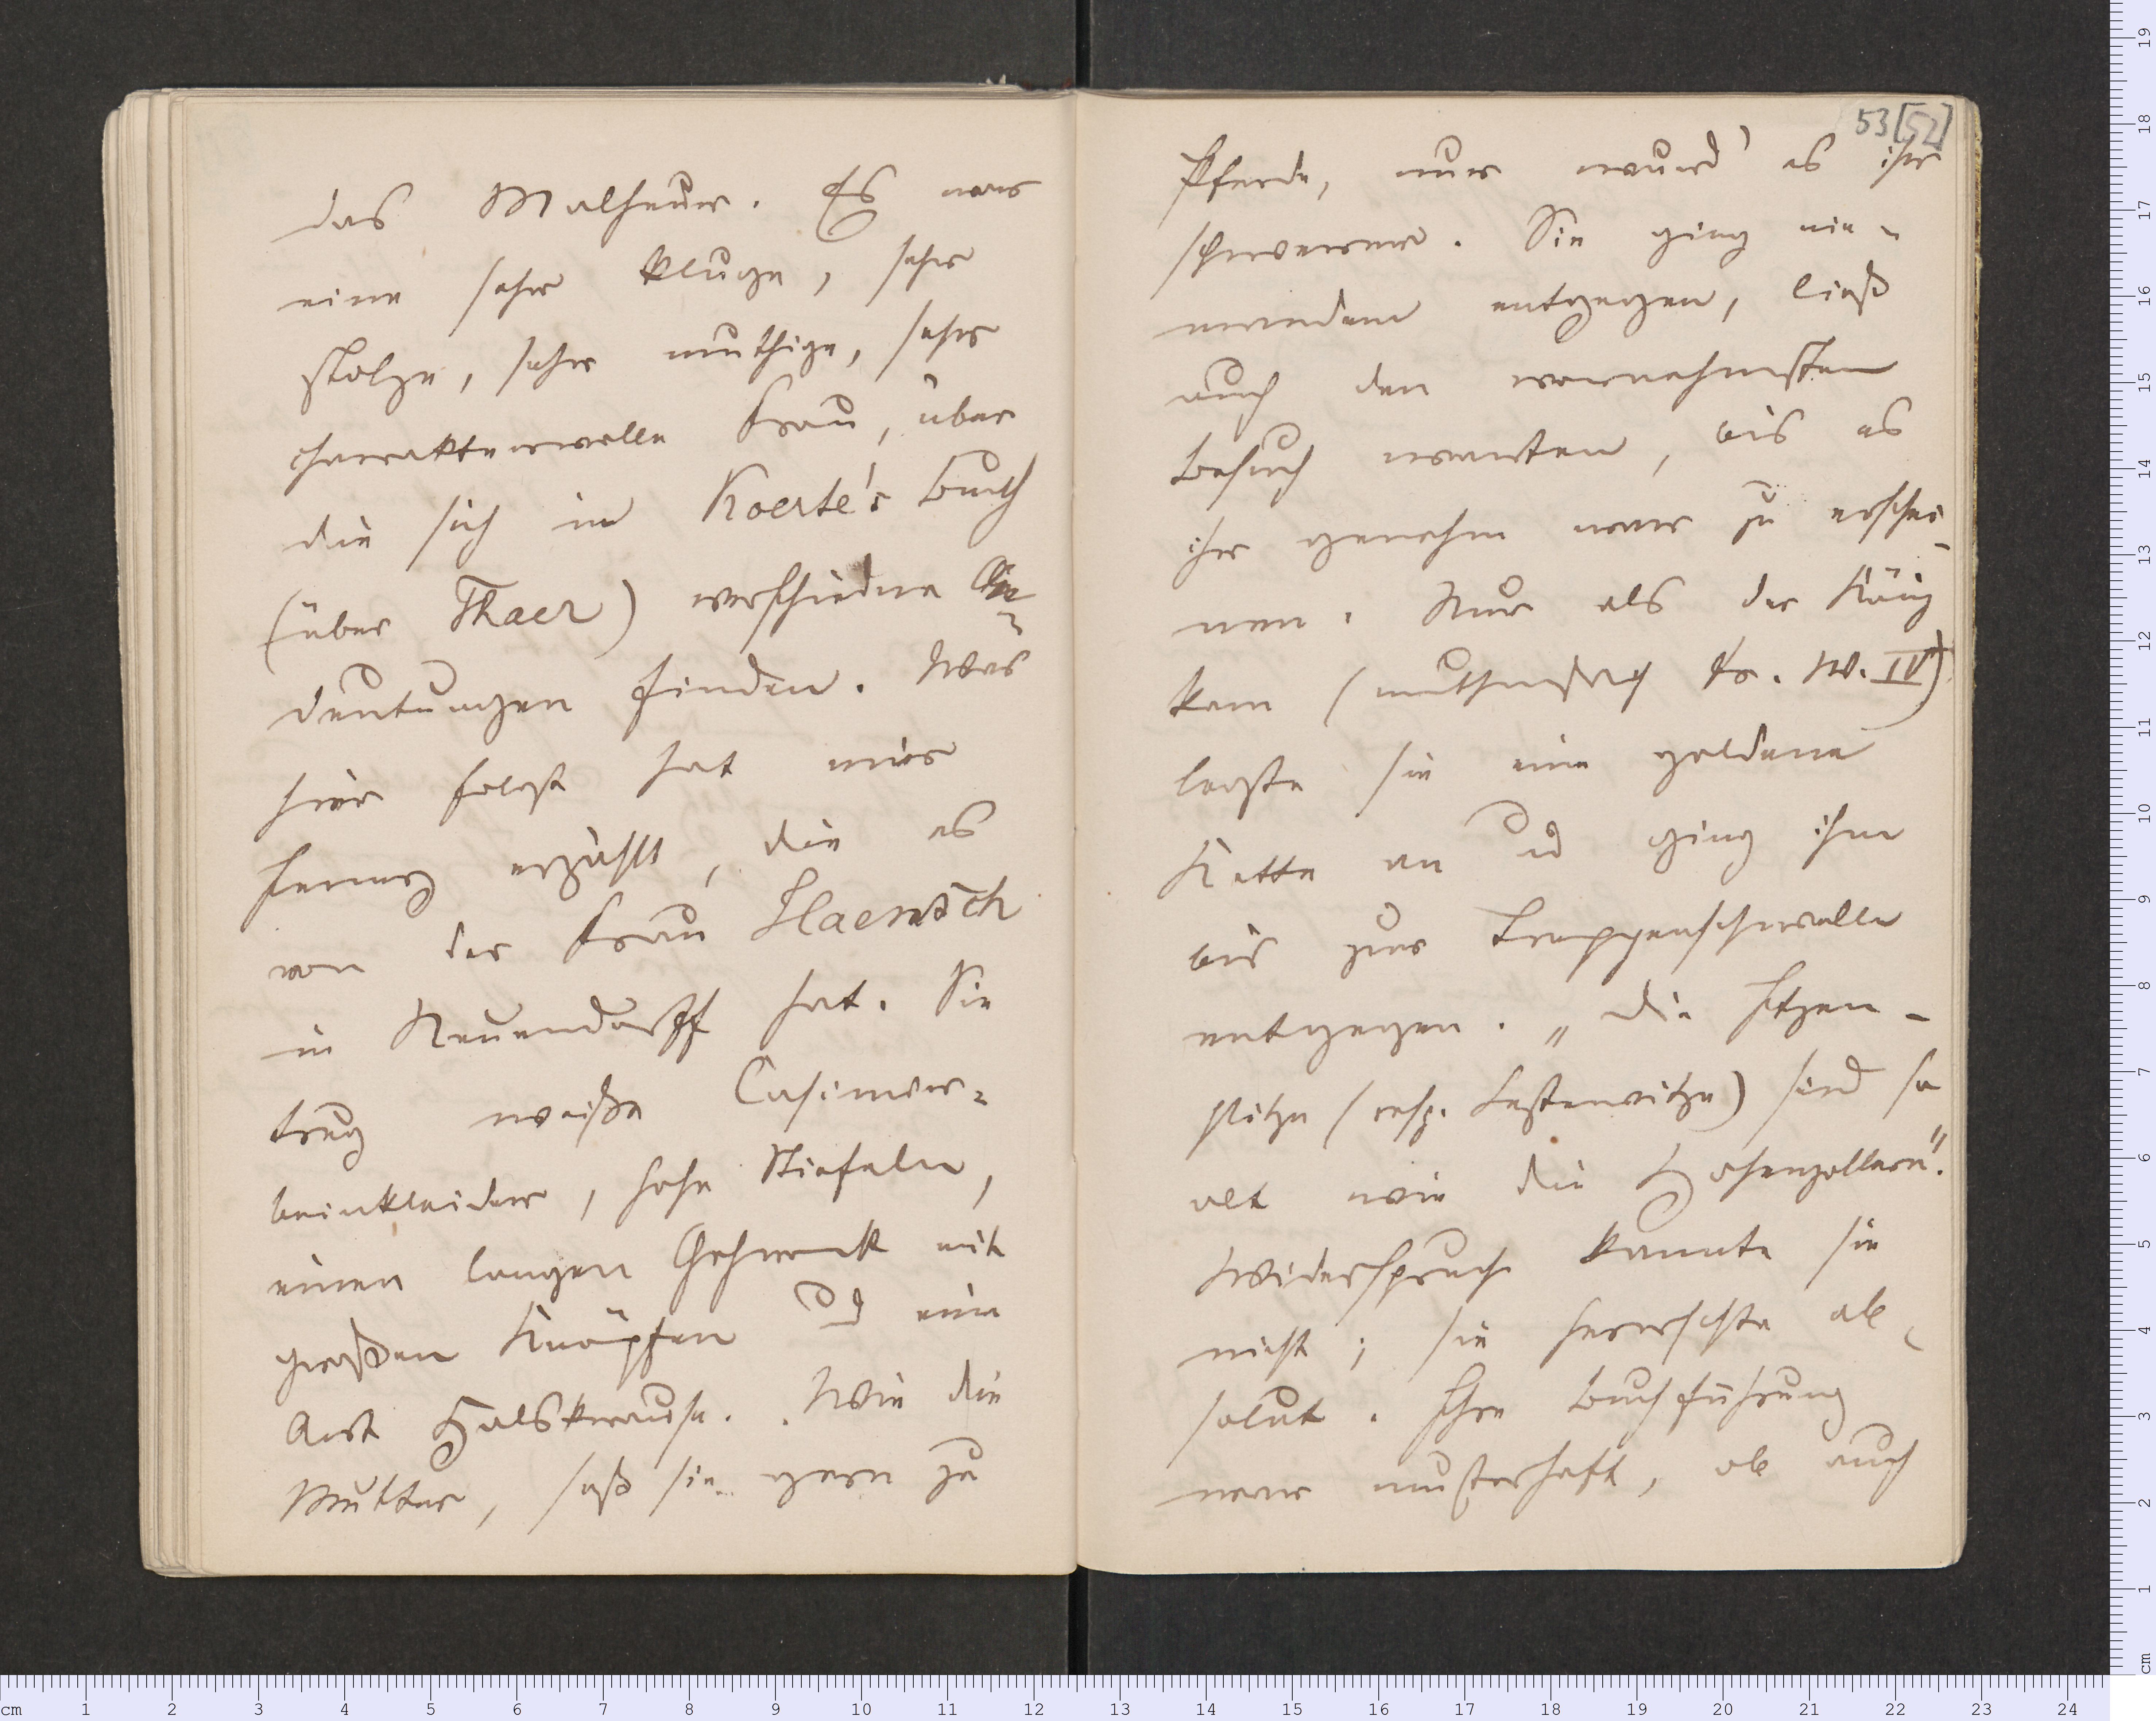 das Malheur. Es war
eine sehr kluge, sehr
stolze, sehr muthige, sehr
charaktervolle Frau, über
die sich in Koerte's Buch
(über Thaer) verschiedne An=
deutungen finden. Was
hier folgt hat mir
erzählt, die es
von der Frau Haensch
in Neuendorff hat. Sie
trug weiße Casimir=
beinkleider, hohe Stiefeln,
einen langen Gehrock mit
großen Knöpfen und eine
Art Halskrause. Wie die
Mutter, saß sie gern zu
53[52]
Pferde, nur wurd' es ihr
schwerer. Sie ging nie=
mandem entgegen, ließ
auch den vornehmsten
Besuch warten, bis es
ihr genehm war zu erschei-
nen. Nur als der König
kam (muthmaßlich Fr. W. IV)
legte sie eine goldene
Kette an ud ging ihm
bis zur Treppenschwelle
entgegen. „Die Itzen-
plitze (resp. Lestewitze) sind so
alt wie die Hohenzollern".
Widerspruch kannte sie
nicht; sie herrschte ab-
solut. Ihre Buchführung
war musterhaft, ob auch